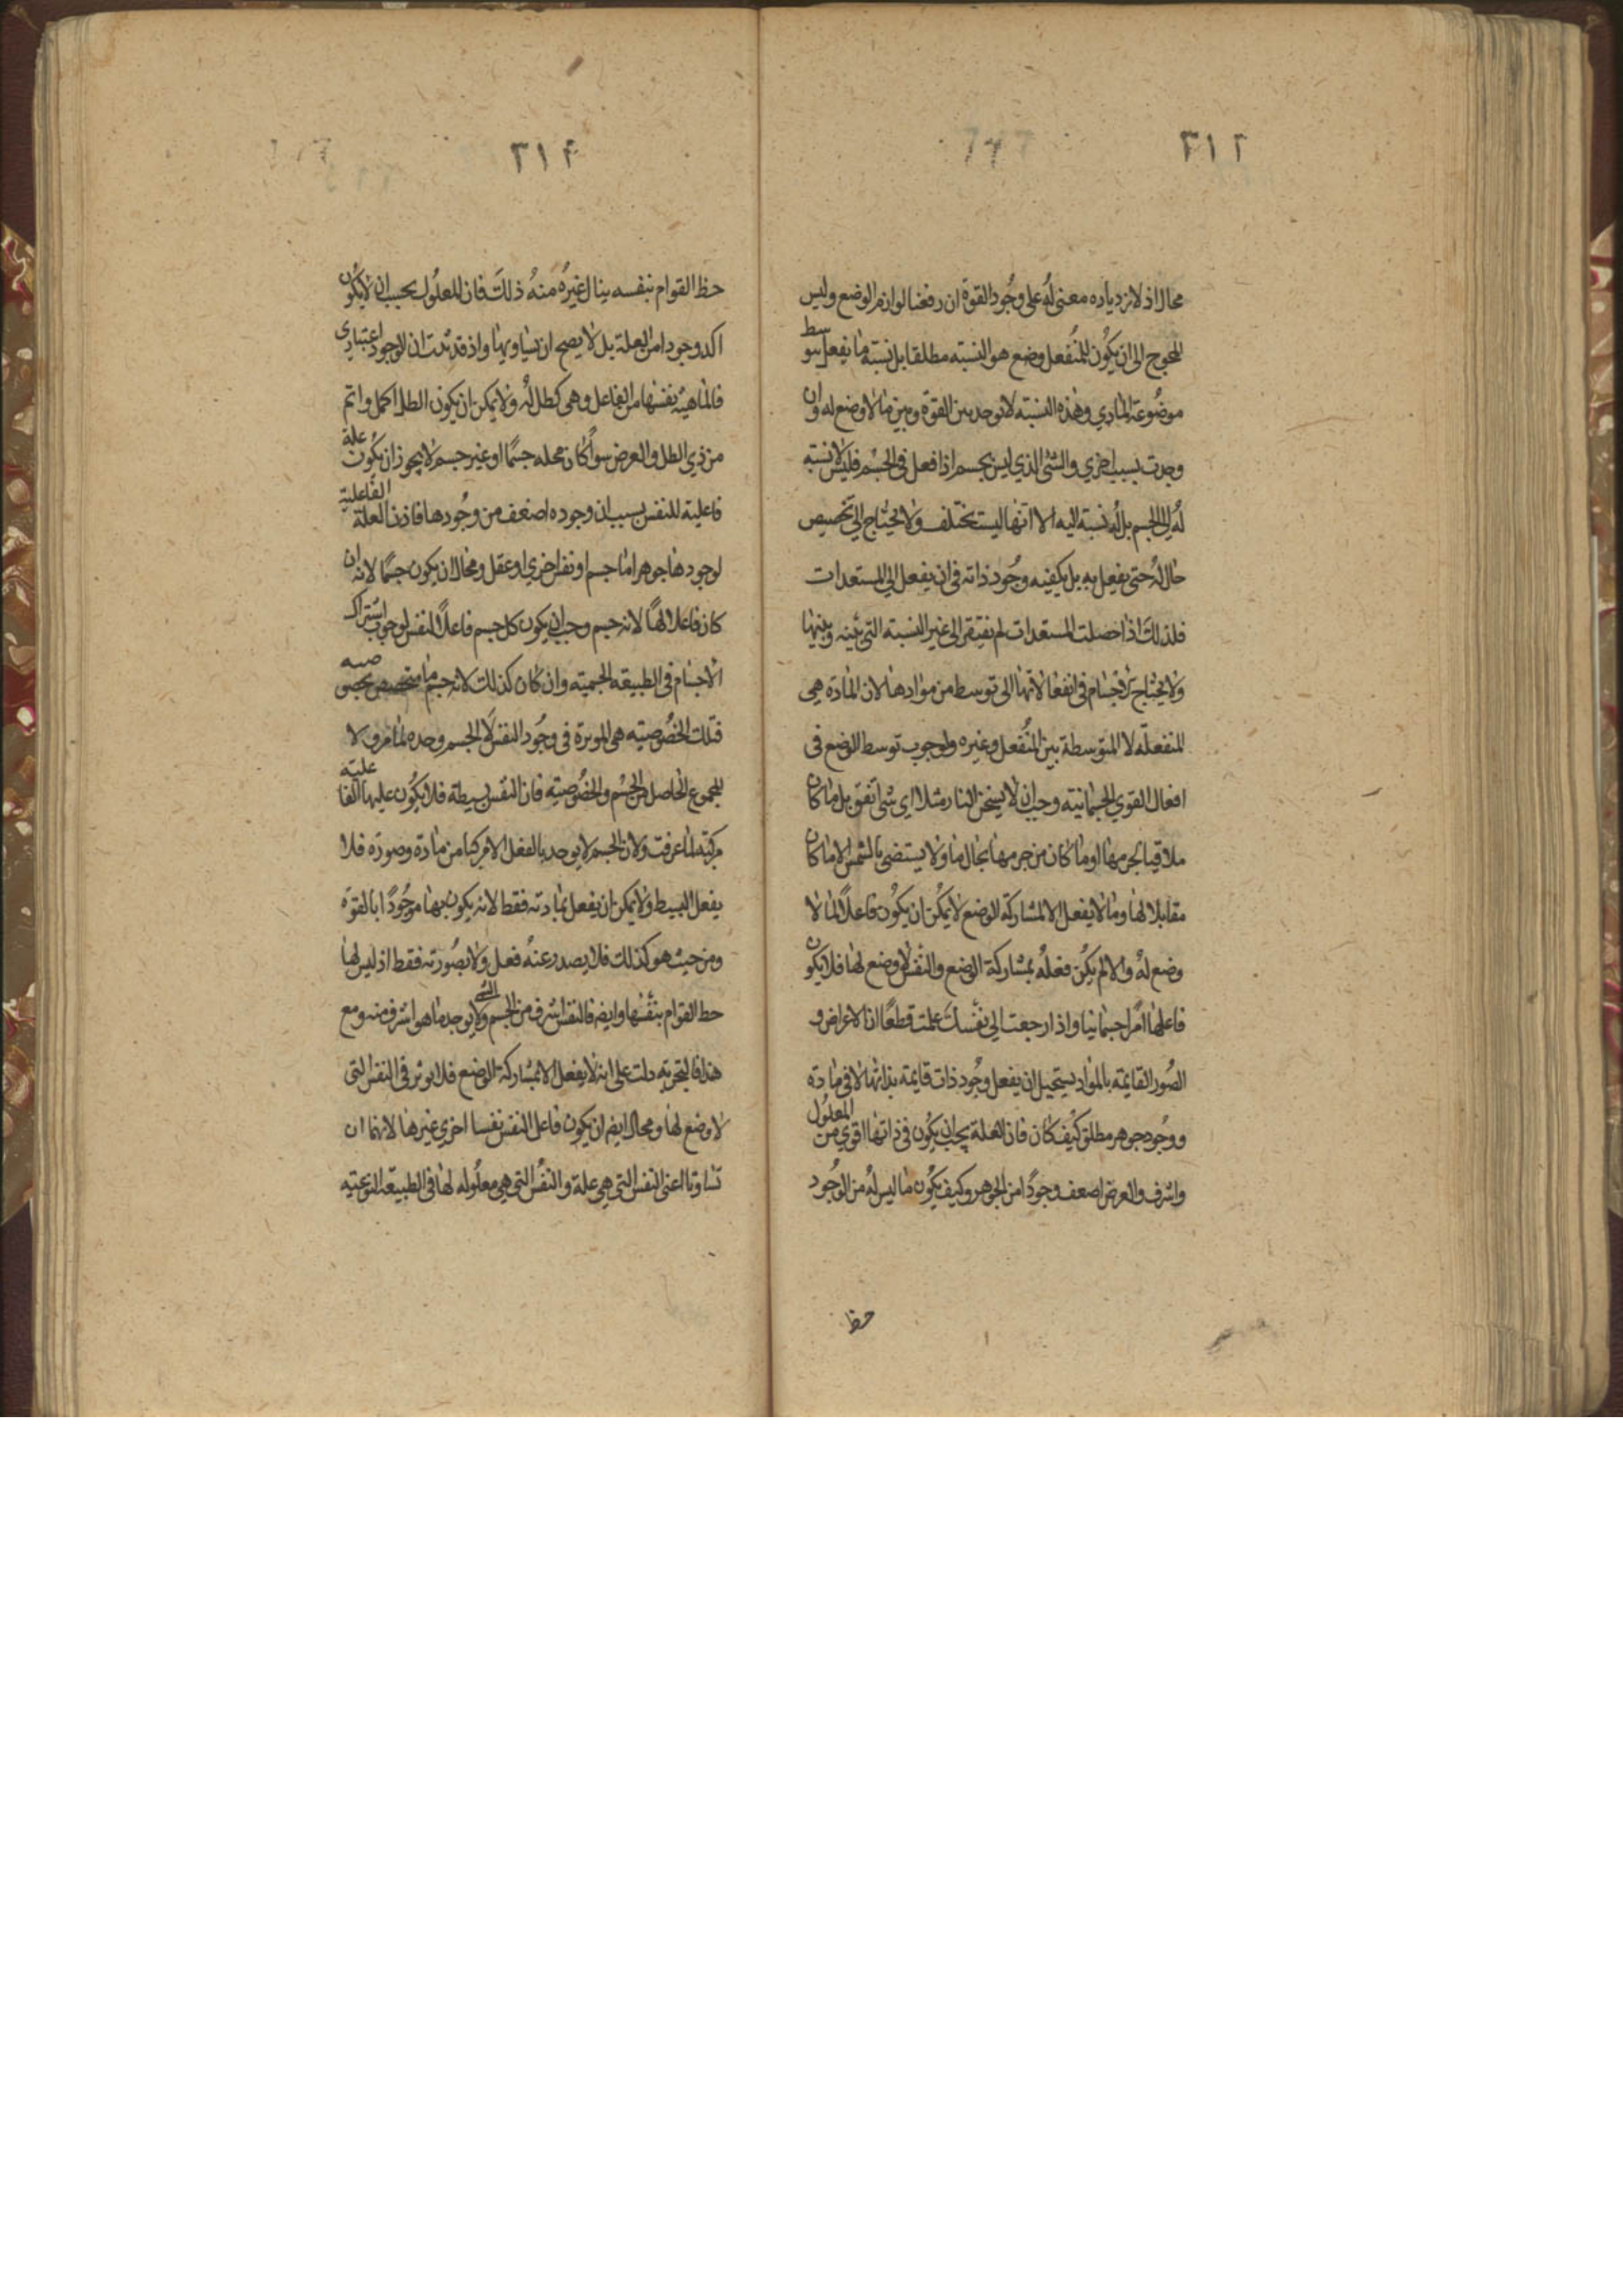 ٣١٣
محال اذ لا زيادة معنى له على وجود القوة ان رفعنا لوازم الوضع وليس
المحوج الى ان يكون للمنفعل وضع هو النسبه مطلقا بل نسبة ما يفعل بتوسط
موضوعة المادي وهذه النسبه لا توجد بين القوة وبين ما لا وضع له وان
وجدت بسبب اخري والشي الذي ليس بجسم اذا فعل في الجسم فليس لا نسبه
له الي الجسم بل له نسبة اليه الا انها ليست تختلف ولا يحتاج الي تخصيص
حال له حتى يفعل به بل يكفيه وجود ذاته في ان يفعل الي المستعدات
فلذلك اذا حصلت المستعدات لم يفتقر الى غير النسبه التي بينه وبينها
ولا يحتاج الاجسام في انفعالاتها الى توسط من موادها لان المادة هي
المنفعله لا المتوسطة بين المنفعل وغيره ولوجوب توسط الوضع في
افعال القوي الجسمانيه وجب ان لا يسخن النار مثلا اي شي اتفق بل ما كان
ملاقيا لجرمها او ما كان من جرمها بحال ما ولا يستضي بالشمس الا ما كان
مقابلا لها وما لا يفعل الا لمشاركة الوضع لا يمكن ان يكون فاعلا لما لا
وضع له والا لم يكن فعله بمشاركة الوضع والنفس لا وضع لها فلا يكون
فاعلها امرا جسمانيا واذا رجعت الي نفسك علمت قطعا ان الاعراض و
الصور القايمه بالمواد يستحيل ان يفعل وجود ذات قايمه بذاتها لا في مادة
ووجود جوهر مطلق كيف كان فان العلة يجب ان يكون في ذاتها اقوي من المعلول
واشرف والعرض اضعف وجودا من الجوهر وكيف يكون ما ليس له من الوجود
حظ
٣١٤
حظ القوام بنفسه ينال غيره منه ذلك فان المعلول يجب ان لا يكون
اكد وجودا من العلة بل لا يصح ان تساويها واذ قد ثبت ان الوجود اعتباري
فالماهية نفسها من الفاعل وهي كظل له ولا يمكن ان يكون الظل اكمل واتم
من ذي الظل والعرض سوا كان محله جسما او غير جسم لا يجوز ان يكون علة
فاعلية للنفس بسبب ان وجوده اضعف من وجودها فاذن العلة الفاعلية
لوجودها جوهر اما جسم او نفس اخري او عقل ومحال ان يكون جسما لانه ان
كان فاعلا لها لانه جسم وجب ان يكون كل جسم فاعلا للنفس لوجوب اشتراك
الاجسام في الطبيعه الجسميه وان كان كذلك لانه جسم ما متخصص بخصوصيه
فتلك الخصوصيه هي الموثرة في وجود النفس لا الجسم وحده لما مر ولا
المجموع الحاصل من الجسم والخصوصيه فان النفس بسيطة فلا يكون عليها الفاعليه
مركبة لما عرفت ولان الجسم لا يوجد بالفعل الا مركبا من مادة وصورة فلا
يفعل البسيط ولا يمكن ان يفعل بمادته فقط لانه يكون بها موجودا بالقوة
ومن حيث هو كذلك فلا يصدر عنه فعل ولا بصورته فقط اذ ليس لها
حظ القوام بنفسها وايضا فالنفس اشرف من الجسم ولا يوجد الشي ما هو اشرف منه ومع
هذا فالتجربه دلت على انه لا يفعل الا بمشاركة الوضع فلا يوثر في النفس التي
لا وضع لها ومحال ايضا ان يكون فاعل النفس نفسا اخري غيرها لانهما ان
تساوتا اعني النفس التي هي علة والنفس التي هي معلوله لها في الطبيعة النوعيه